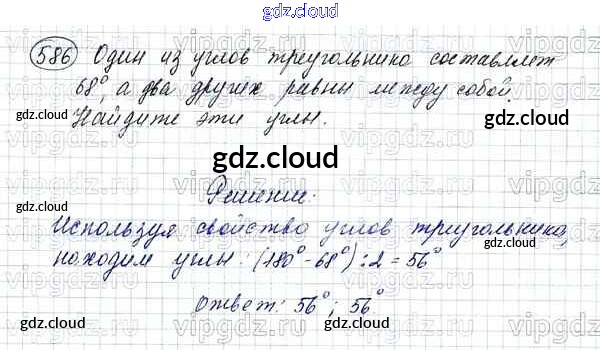 gdz.cloud
586 Один из углов треугольника составляет
68°, а два других равны между собой.
Найдите эти углы.
gdz.cloud
gdz.cloud
gdz.cloud
gdz.cloud
Решение:
gdz.cloud
Используя свойство углов треугольника,
gdz.cloud
находим углы: (180° - 68°) : 2 = 56°
Ответ: 56°; 56°
gdz.cloud
gdz.cloud